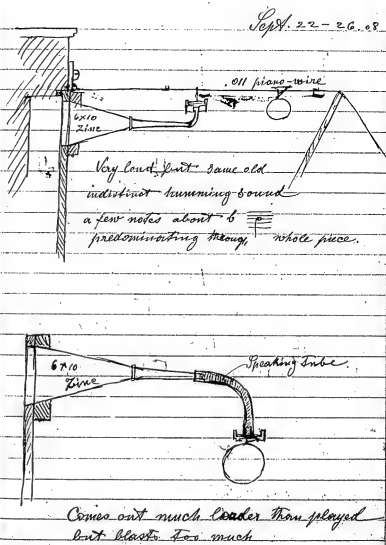 Sept. 22-26.08
.011 piano-wire
6x10
Zinc
Very loud but same old
indistinct humming sound
a few notes about b
predominating throug, whole piece.
6x10
Zinc
Speaking Tube.
Comes out much louder than played
but blasts too much